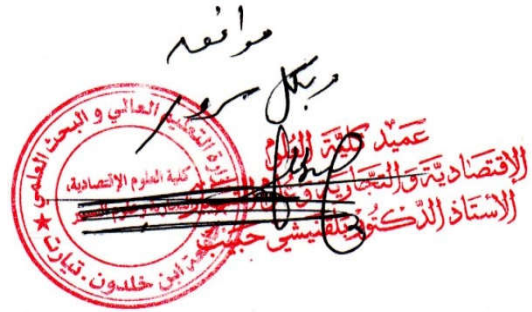 موافقة
و بكل سرور
وزارة التعليم العالي و البحث العلمي
كلية العلوم الإقتصادية،
ابن خلدون . تيارت
عميد كلية العلوم
الإقتصادية والتجارية وعلوم
الاستاذ الدكتور بلقنيشي حبيب